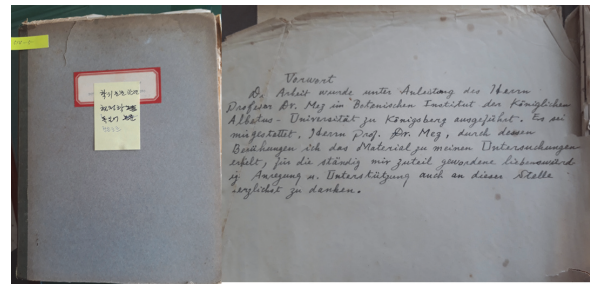 Vorwort
D. Arbeit wurde unter Anleitung des Herrn
Profesor Dr. Mez im Botenischen Institut der Königlichen
Albatus - Universität zu Königsberg ausgeführt. Es sei
mirgestettet, Herrn Prof. Dr. Mez, durch dessen
ich das Material zu meinen Untersuchungen
für die ständig mir zuteil gewordene liebenswürd
ig Anregung u. Unterstützung auch an dieser Stelle
herzlichst zu danken.